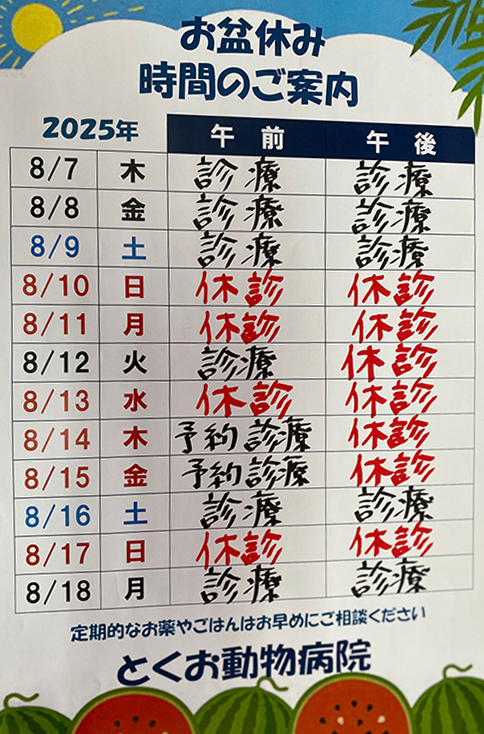 お盆休み
時間のご案内
2025年 午前 午後
8/7 木 診療 診療
8/8 金 診療 診療
8/9 土 診療 診療
8/10 日 休診 休診
8/11 月 休診 休診
8/12 火 診療 休診
8/13 水 休診 休診
8/14 木 予約診療 休診
8/15 金 予約診療 休診
8/16 土 診療 診療
8/17 日 休診 休診
8/18 月 診療 診療
定期的なお薬やごはんはお早めにご相談ください
とくお動物病院